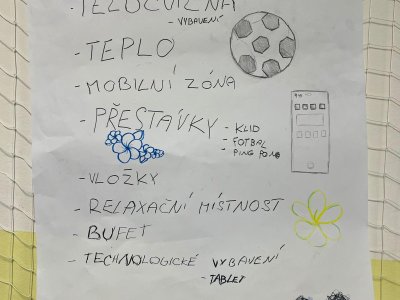 - TĚLOCVIČNA
- VYBAVENÍ
- TEPLO
- MOBILNÍ ZÓNA
- PŘESTÁVKY
- KLID
- FOTBAL
- PING PONG
- VLOŽKY
- RELAXAČNÍ MÍSTNOST
- BUFET
- TECHNOLOGICKÉ VYBAVENÍ
- TABLET